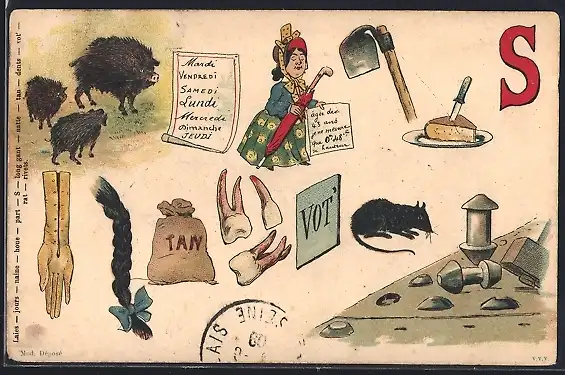 Mardi
VENDREDI
SAMEDI
Lundi
Mercredi
Dimanche
JEUDI
agée de
43 ans
je ne mesure
que
de
hauteur
S
TAN
VOT'
Laies — jours — naine — houe — part — S — long gant — natte — tan — dents — vot' —
rat — rivets.
SEINE
AIS
Mod. Déposé
V.V.V.